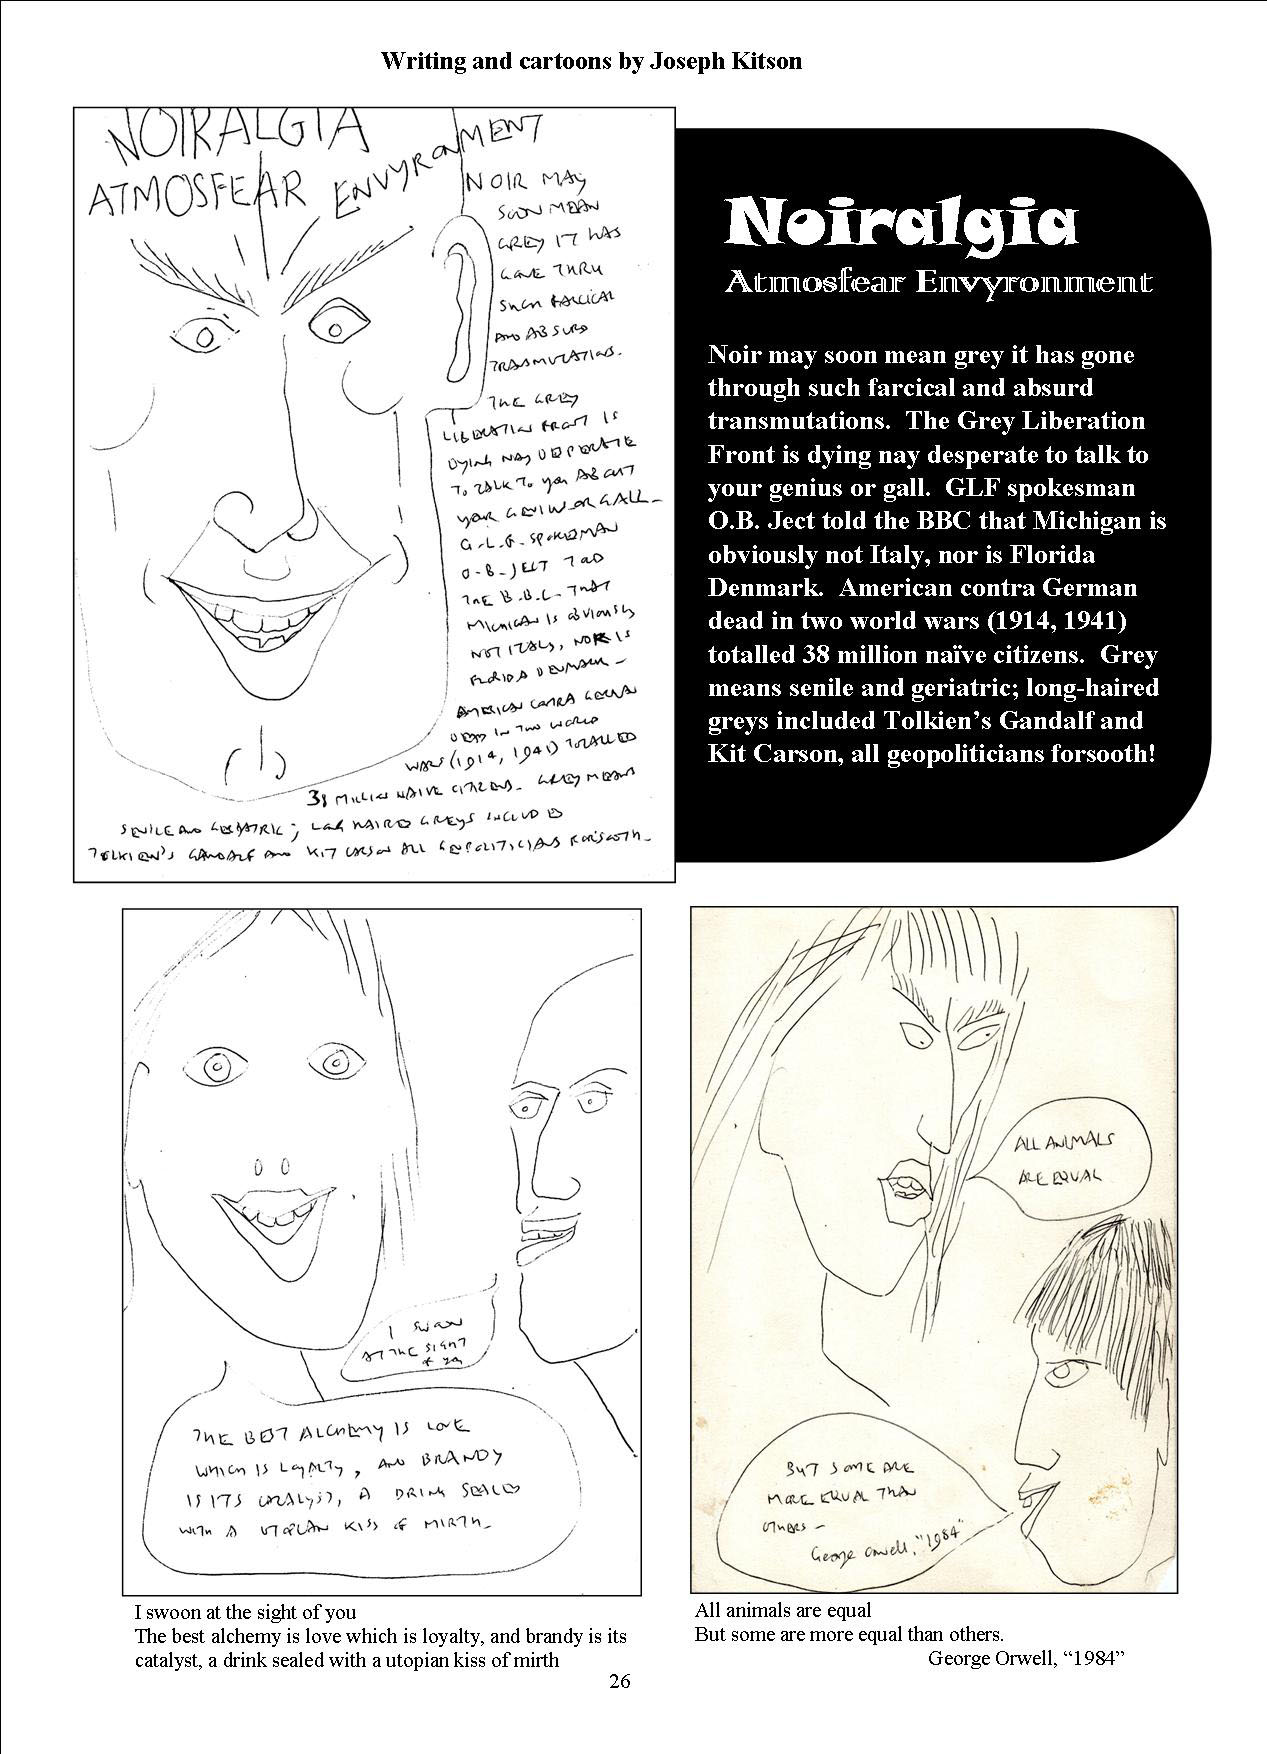 Writing and cartoons by Joseph Kitson
NOIRALGIA
ATMOSFEAR ENVYRONMENT
NOIR MAY
SOON MEAN
GREY IT HAS
GONE THRU
SUCH FARCICAL
AND ABSURD
TRASMUTATIONS.
THE GREY
LIBERATION FRONT IS
DYING NAY DESPERATE
TO TALK TO YOU ABOUT
YOUR GENIUS OR GALL-
G.L.F. SPOKESMAN
O.B. JECT TOLD
THE B.B.C. THAT
MICHIGAN IS OBVIOUSLY
NOT ITALY, NOR IS
FLORIDA DENMARK-
AMERICAN CONTRA GERMAN
DEAD IN TWO WORLD
WARS (1914, 1941) TOTALLED
38 MILLION NAIVE CITIZENS. GREY MEANS
SENILE AND GERIATRIC; LONG HAIRED GREYS INCLUDED
TOLKIEN'S GANDALF AND KIT CARSON ALL GEOPOLITICIANS FORSOOTH-
Noiralgia
Atmosfear Envyronment
Noir may soon mean grey it has gone
through such farcical and absurd
transmutations.  The Grey Liberation
Front is dying nay desperate to talk to
your genius or gall.  GLF spokesman
O.B. Ject told the BBC that Michigan is
obviously not Italy, nor is Florida
Denmark.  American contra German
dead in two world wars (1914, 1941)
totalled 38 million naïve citizens.  Grey
means senile and geriatric; long-haired
greys included Tolkien's Gandalf and
Kit Carson, all geopoliticians forsooth!
I SWOON
AT THE SIGHT
of you
THE BEST ALCHEMY IS LOVE
WHICH IS LOYALTY, AND BRANDY
IS ITS CATALYST, A DRINK SEALED
WITH A UTOPIAN KISS OF MIRTH-
I swoon at the sight of you
The best alchemy is love which is loyalty, and brandy is its
catalyst, a drink sealed with a utopian kiss of mirth
ALL ANIMALS
ARE EQUAL
BUT SOME ARE
MORE EQUAL THAN
OTHERS-
George Orwell, "1984"
All animals are equal
But some are more equal than others.
George Orwell, "1984"
26